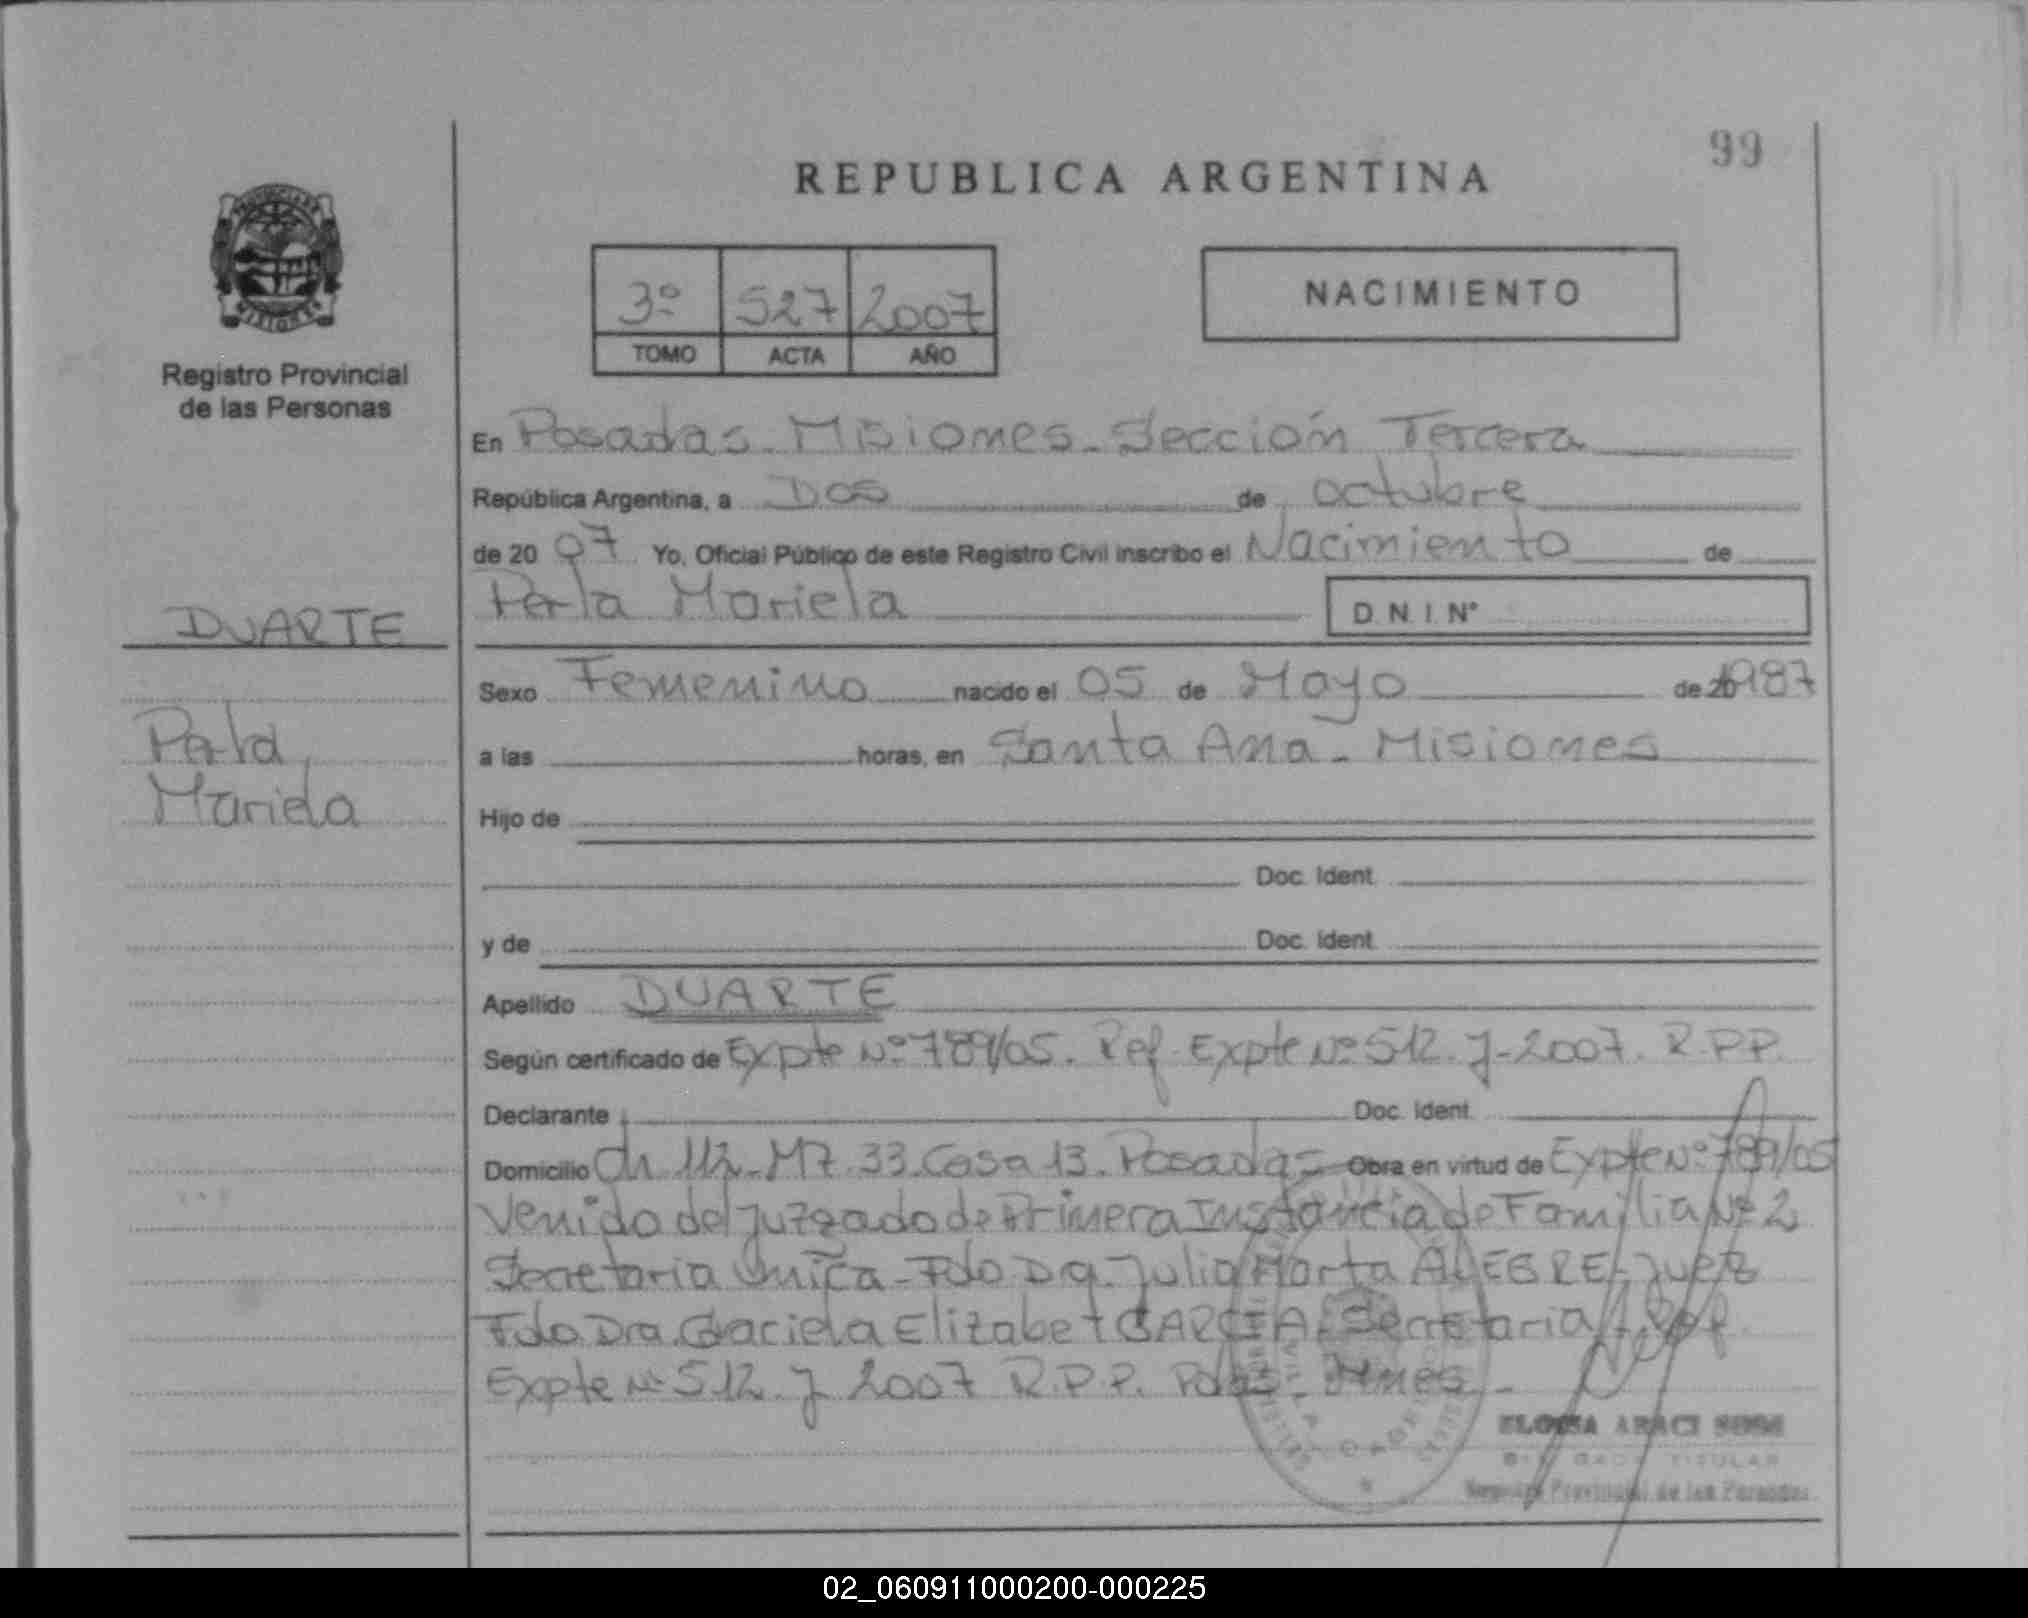 99
REPUBLICA ARGENTINA
3º 527 2007
TOMO ACTA AÑO
NACIMIENTO
PROVINCIA DE
MISIONES
Registro Provincial
de las Personas
DUARTE
Perla
Mariela
En Posadas - Misiones - Sección Tercera
República Argentina, a Dos de octubre
de 20 07 Yo, Oficial Público de este Registro Civil inscribo el Nacimiento de
Perla Mariela D.N.I. Nº
Sexo Femenino nacido el 05 de Mayo de 1987
a las horas, en Santa Ana - Misiones
Hijo de
Doc. Ident.
y de Doc. Ident.
Apellido DUARTE
Según certificado de Expte Nº 789/05. Ref. Expte Nº 512. J-2007. R.P.P.
Declarante Doc. Ident.
Domicilio Ch 112 - MZ 33. Casa 13. Posadas Obra en virtud de Expte Nº 789/05
Venido del Juzgado de Primera Instancia de Familia Nº 2
Secretaria Unica - Fdo Dra. Julia Marta ALEGRE - Juez
Fdo Dra. Graciela Elizabet GARCIA - Secretaria - Ref.
Expte Nº 512 J 2007 R.P.P. Pdas - Mnes -
ELOISA ARACI
TITULAR
Registro Provincial de las Personas
02_060911000200-000225